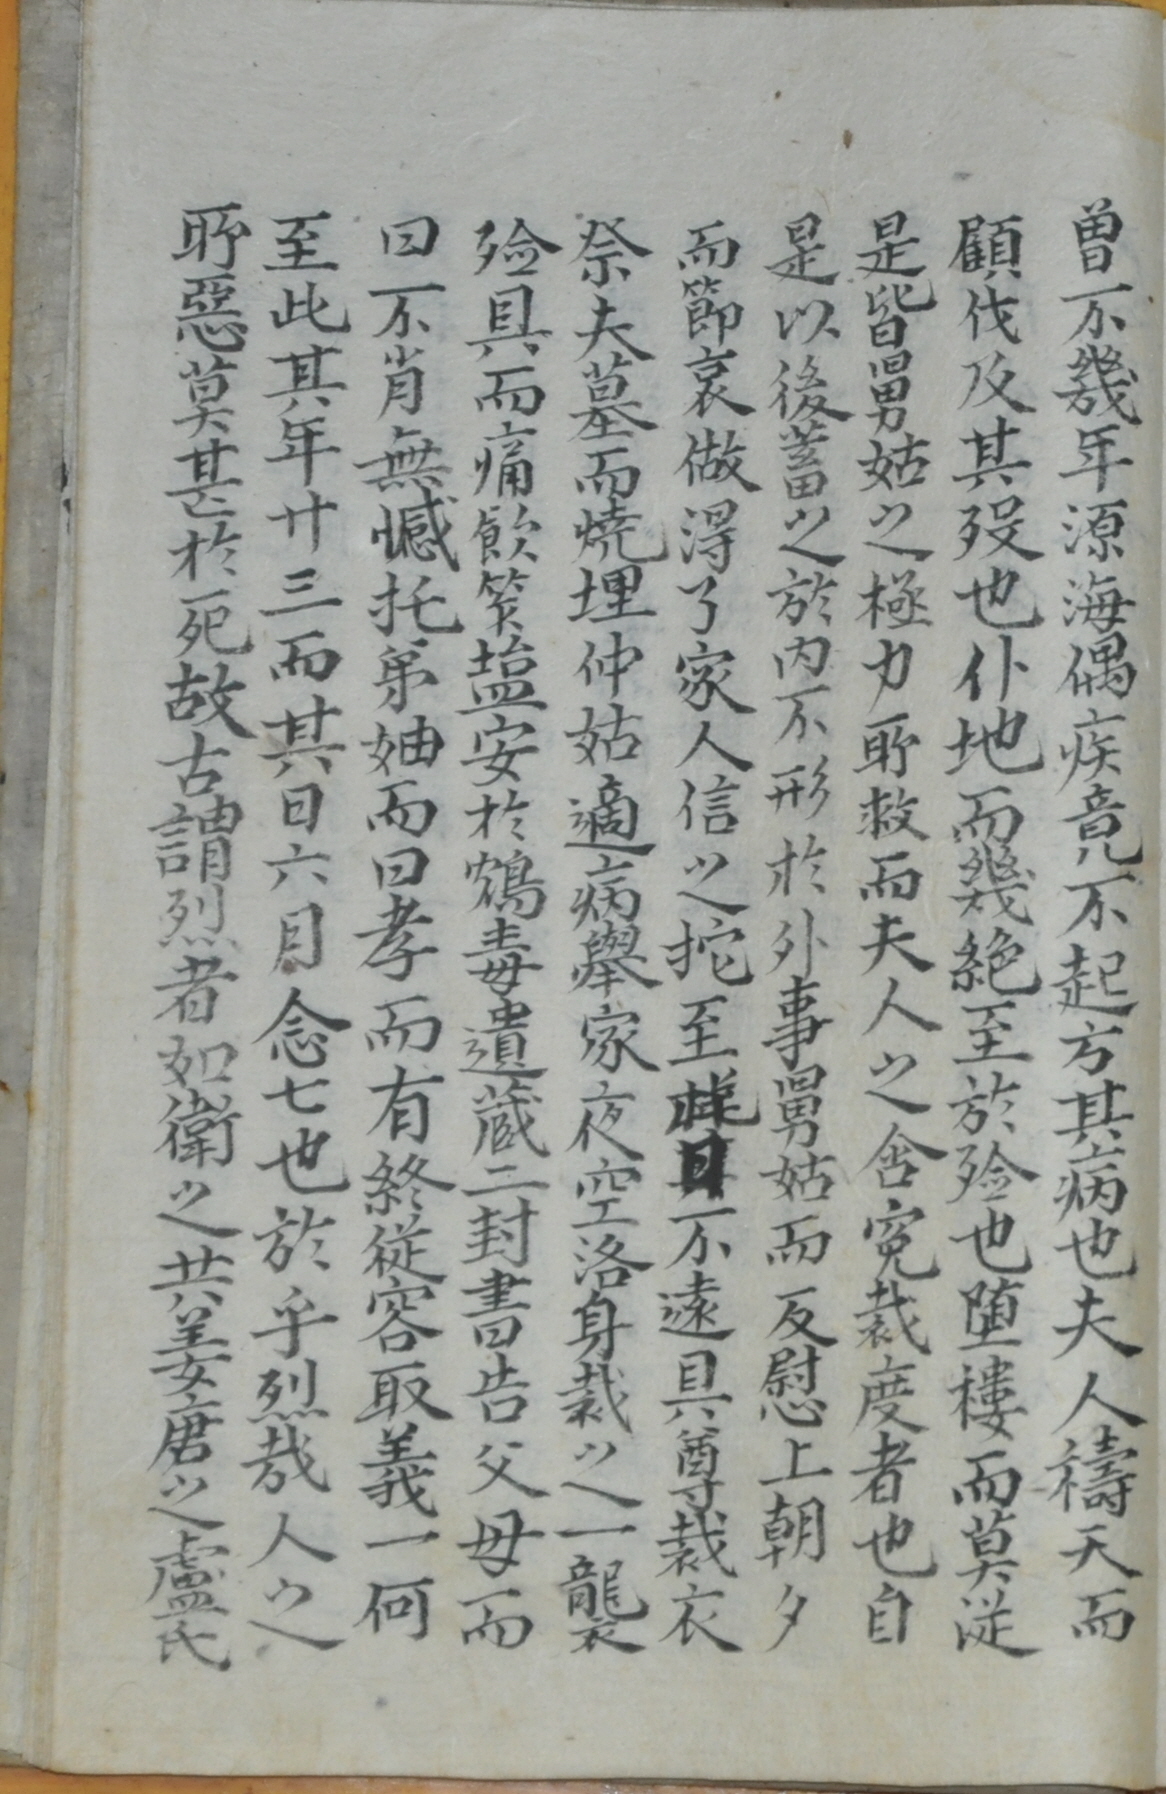 曽不幾年源海偶疾竟不起方其病也夫人禱天而
願伐及其殁也仆地而幾絶至於殮也堕樓而莫從
是皆舅姑之極力所救而夫人之含寃裁度者也自
是以後蓄之於内不形於外事舅姑而反慰上朝夕
而節哀做得了家人信之挖至祥日不遠具尊裁衣
祭夫墓而燒埋仲姑適病舉家夜空洛身裁之一襲
殮具而痛飮笑塩安於鴆毒遺蔵二封書告父母而
曰不肖無憾托弟妯而曰孝而有終從容取義一何
至此其年廿三而其日六月念七也於乎烈哉人之
所惡莫甚於死故古謂烈者如衛之共姜唐之盧氏